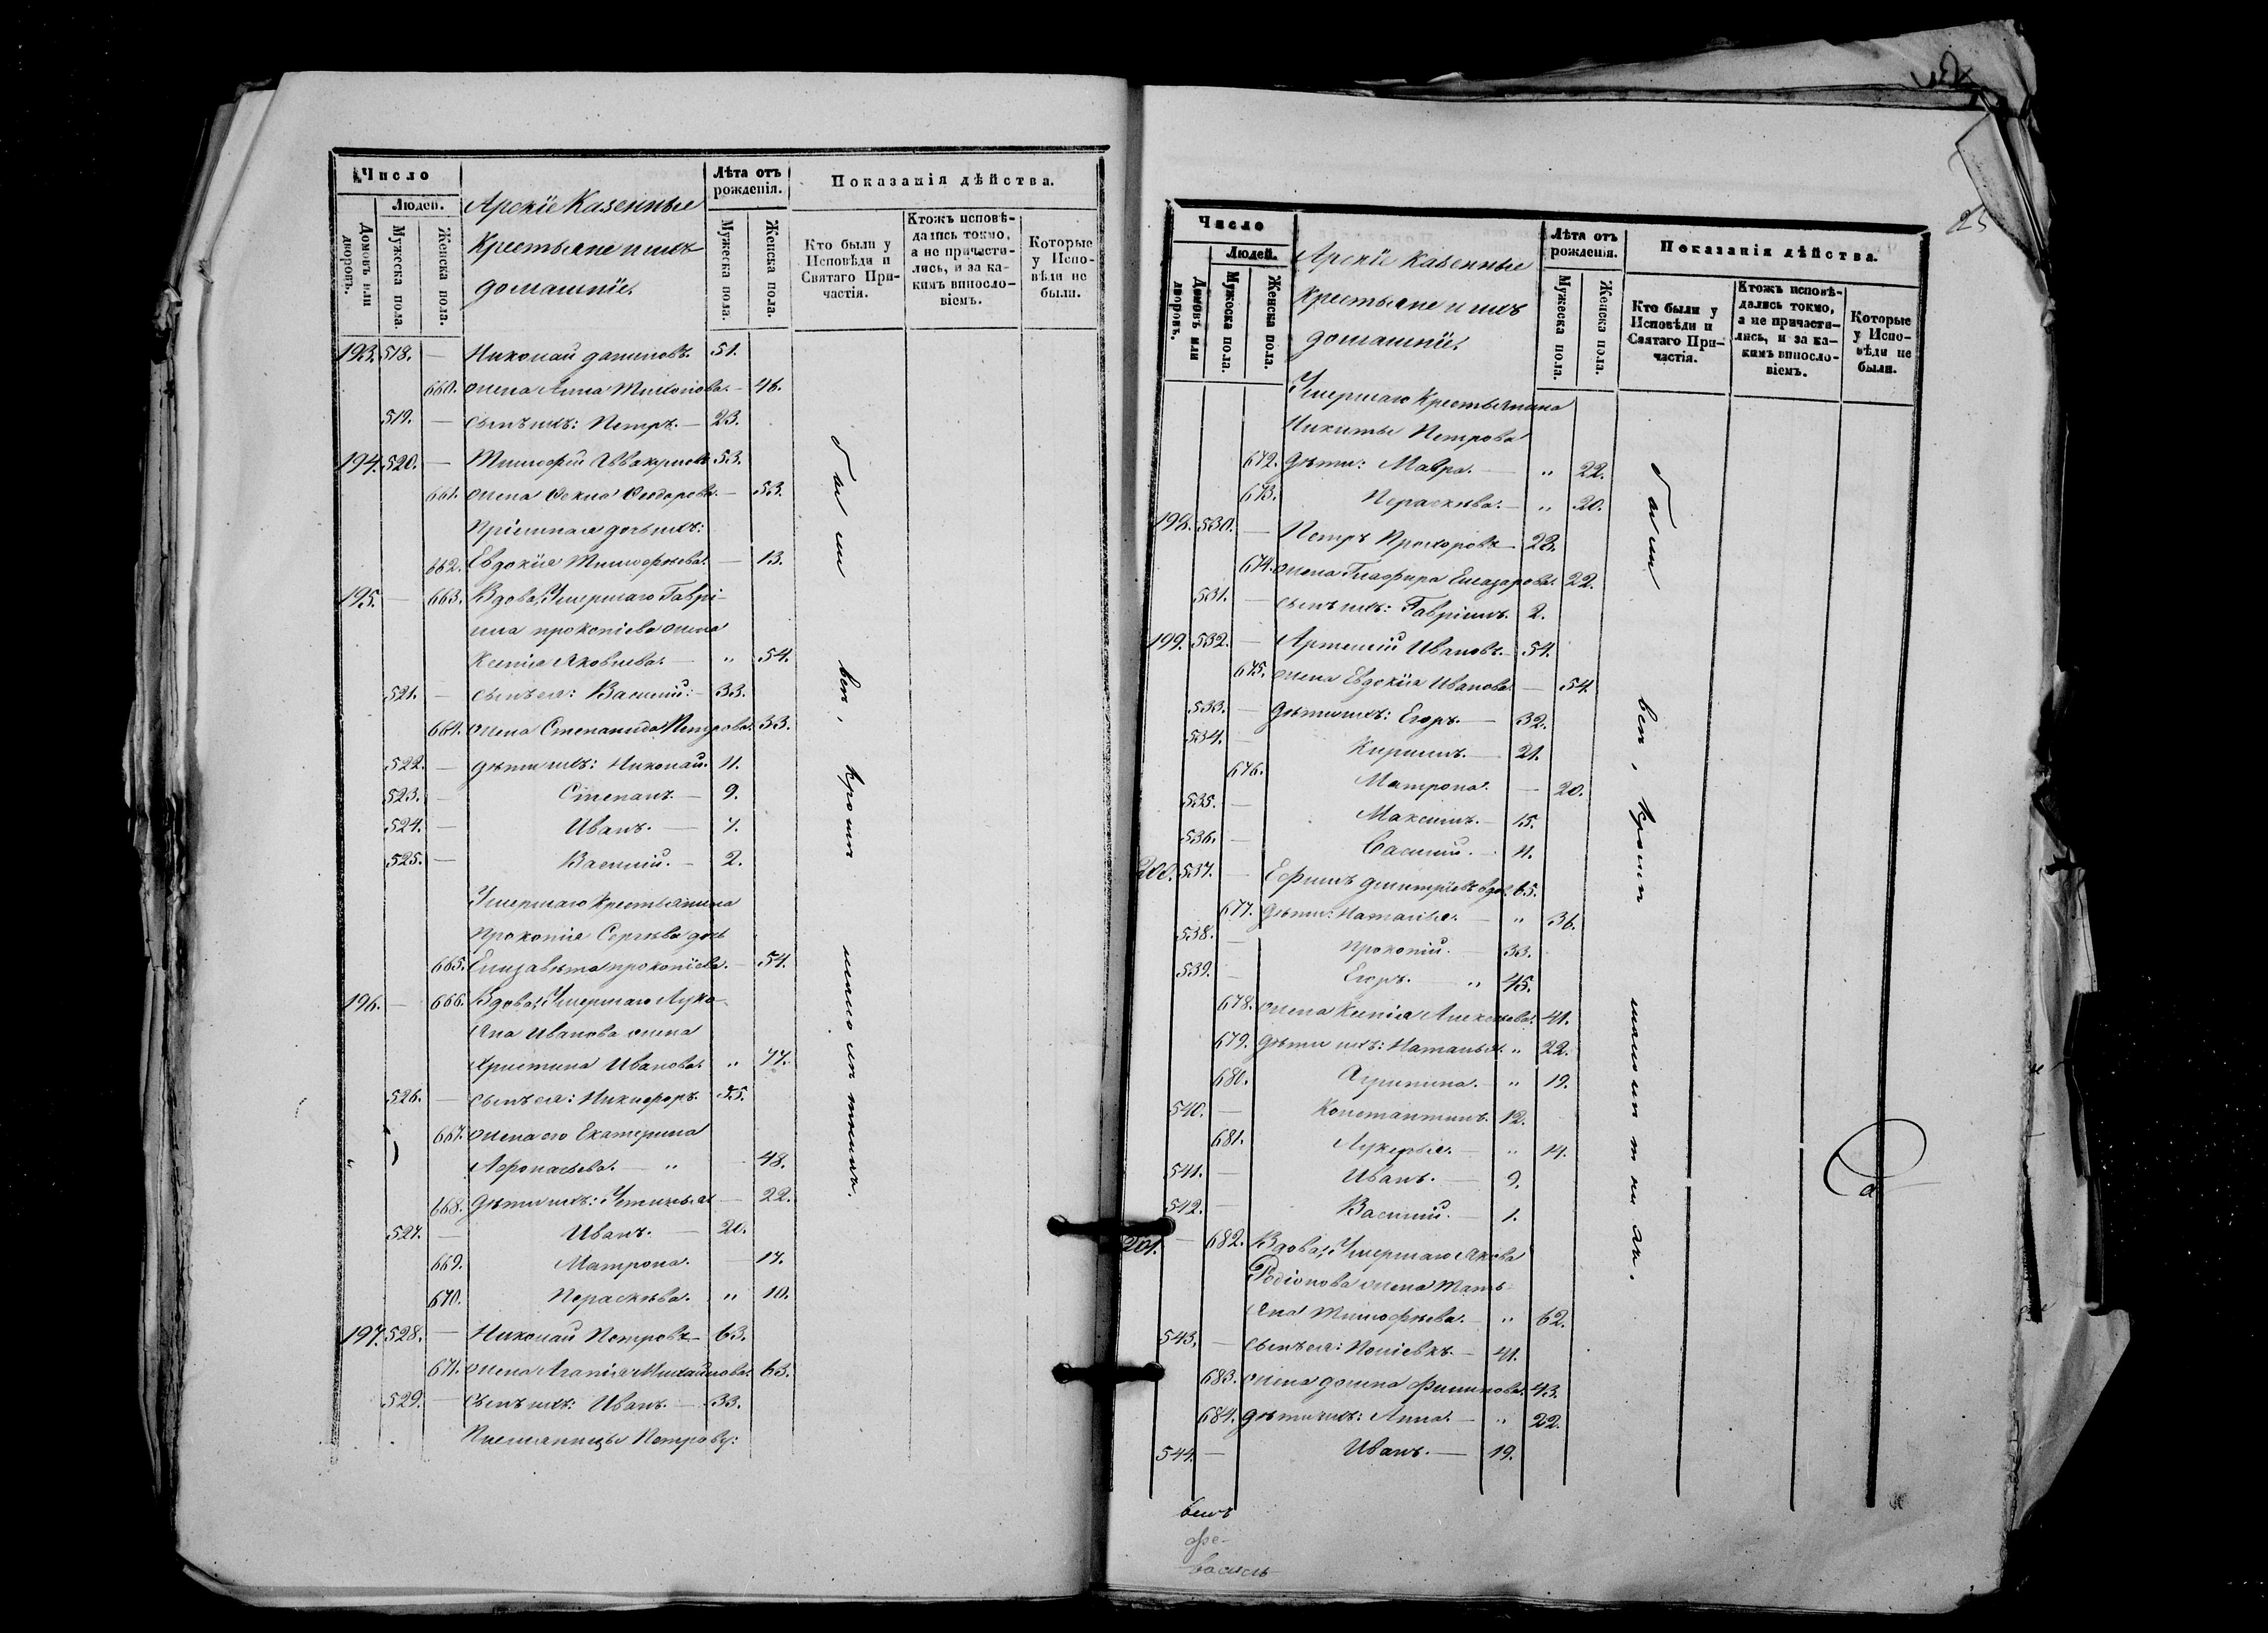 Число
Людей.
Домовъ или дворовъ.
Мужеска пола.
Женска пола.
Арскіе Казенные
Крестьяне и ихъ
домашніе.
Лѣта отъ рожденія.
Мужеска пола.
Женска пола.
Показанія дѣйства.
Кто были у Исповѣди и Святаго Причастія.
Ктожъ исповѣдались токмо, а не причастились, и за какимъ винословіемъ.
Которые у Исповѣди не были.
193. 518. — Николай Даниловъ. 51.
660. жена Анна — 46.
519. — сынъ ихъ: Петръ. — 23.
194. 520. — Тимофей Аввакумовъ 53.
661. жена Фекла Феодорова. — 53.
Пріемная дочь ихъ:
662. Евдокія Тимофѣева. — 13.
195. — 663. Вдова, Умершаго Гаврі-
ила Прокопіева жена
Ксенія Яковлева. — " 54.
521. — сынъ ея: Василій: — 33.
664. жена Степанида Петрова. 33.
522. — дѣти ихъ: Николай. 11.
523. — Степанъ. — 9.
524. — Иванъ. — 7.
525. — Василій. — 2.
Умершаго Крестьянина
Прокопія Сергѣева дочь
665. Елизавета Прокопіева. — 54.
196. — 666. Вдова, Умершаго Луко-
яна Иванова жена
Христина Иванова. " 77.
526. — сынъ ея: Никифоръ. 55.
667. жена его Екатерина
Афонасьева. — " 48.
668. дѣти ихъ: Устинья — 22.
527. — Иванъ. — 20.
669. Матрона. — 17.
670. Параскева. " 10.
197. 528. — Николай Петровъ — 63.
671. жена Агапія Михайлова. 63.
529. — сынъ ихъ: Иванъ. — 33.
Племянницы Петрову:
были всѣ, кромѣ
25
Число
Людей.
Домовъ или дворовъ.
Мужеска пола.
Женска пола.
Арскіе Казенные
Крестьяне и ихъ
домашніе.
Лѣта отъ рожденія.
Мужеска пола.
Женска пола.
Показанія дѣйства.
Кто были у Исповѣди и Святаго Причастія.
Ктожъ исповѣдались токмо, а не причастились, и за какимъ винословіемъ.
Которые у Исповѣди не были.
Умершаго Крестьянина
Никиты Петрова
672. дѣти: Мавра. — " 22.
673. Параскева. — " 20.
198. 530. — Петръ Прохоровъ — 23.
674. жена Глафира Елеазарова. 22.
531. — сынъ ихъ: Гавріилъ. 2.
199. 532. — Артемій Ивановъ. — 54.
675. жена Евдокія Иванова. — 54.
533. — дѣти ихъ: Егоръ. — 32.
534. — Кириллъ. — 21.
676. Матрона. — 20.
535. — Максимъ. — 15.
536. — Василій. — 11.
200. 537. — Ефимъ Дмитріевъ вдов. 65.
677. дѣти: Наталья. — " 36.
538. — Прокопій. — 33.
539. — Егоръ. — " 45.
678. жена Ксенія Алексѣева. 41.
679. дѣти ихъ: Наталья. " 22.
680. Агрипина. — " 19.
540. — Константинъ. 12.
681. Лукерья. — " 14.
541. — Иванъ. — 9.
542. — Василій. — 1.
201. — 682. Вдова, Умершаго Якова
Родіонова жена Тать-
яна Тимофѣева. — " 62.
543. — сынъ ея: — 41.
683. жена Домна Филипова. 43.
684. дѣти ихъ: Анна. — " 22.
544. — Иванъ. — 19.
были всѣ, кромѣ